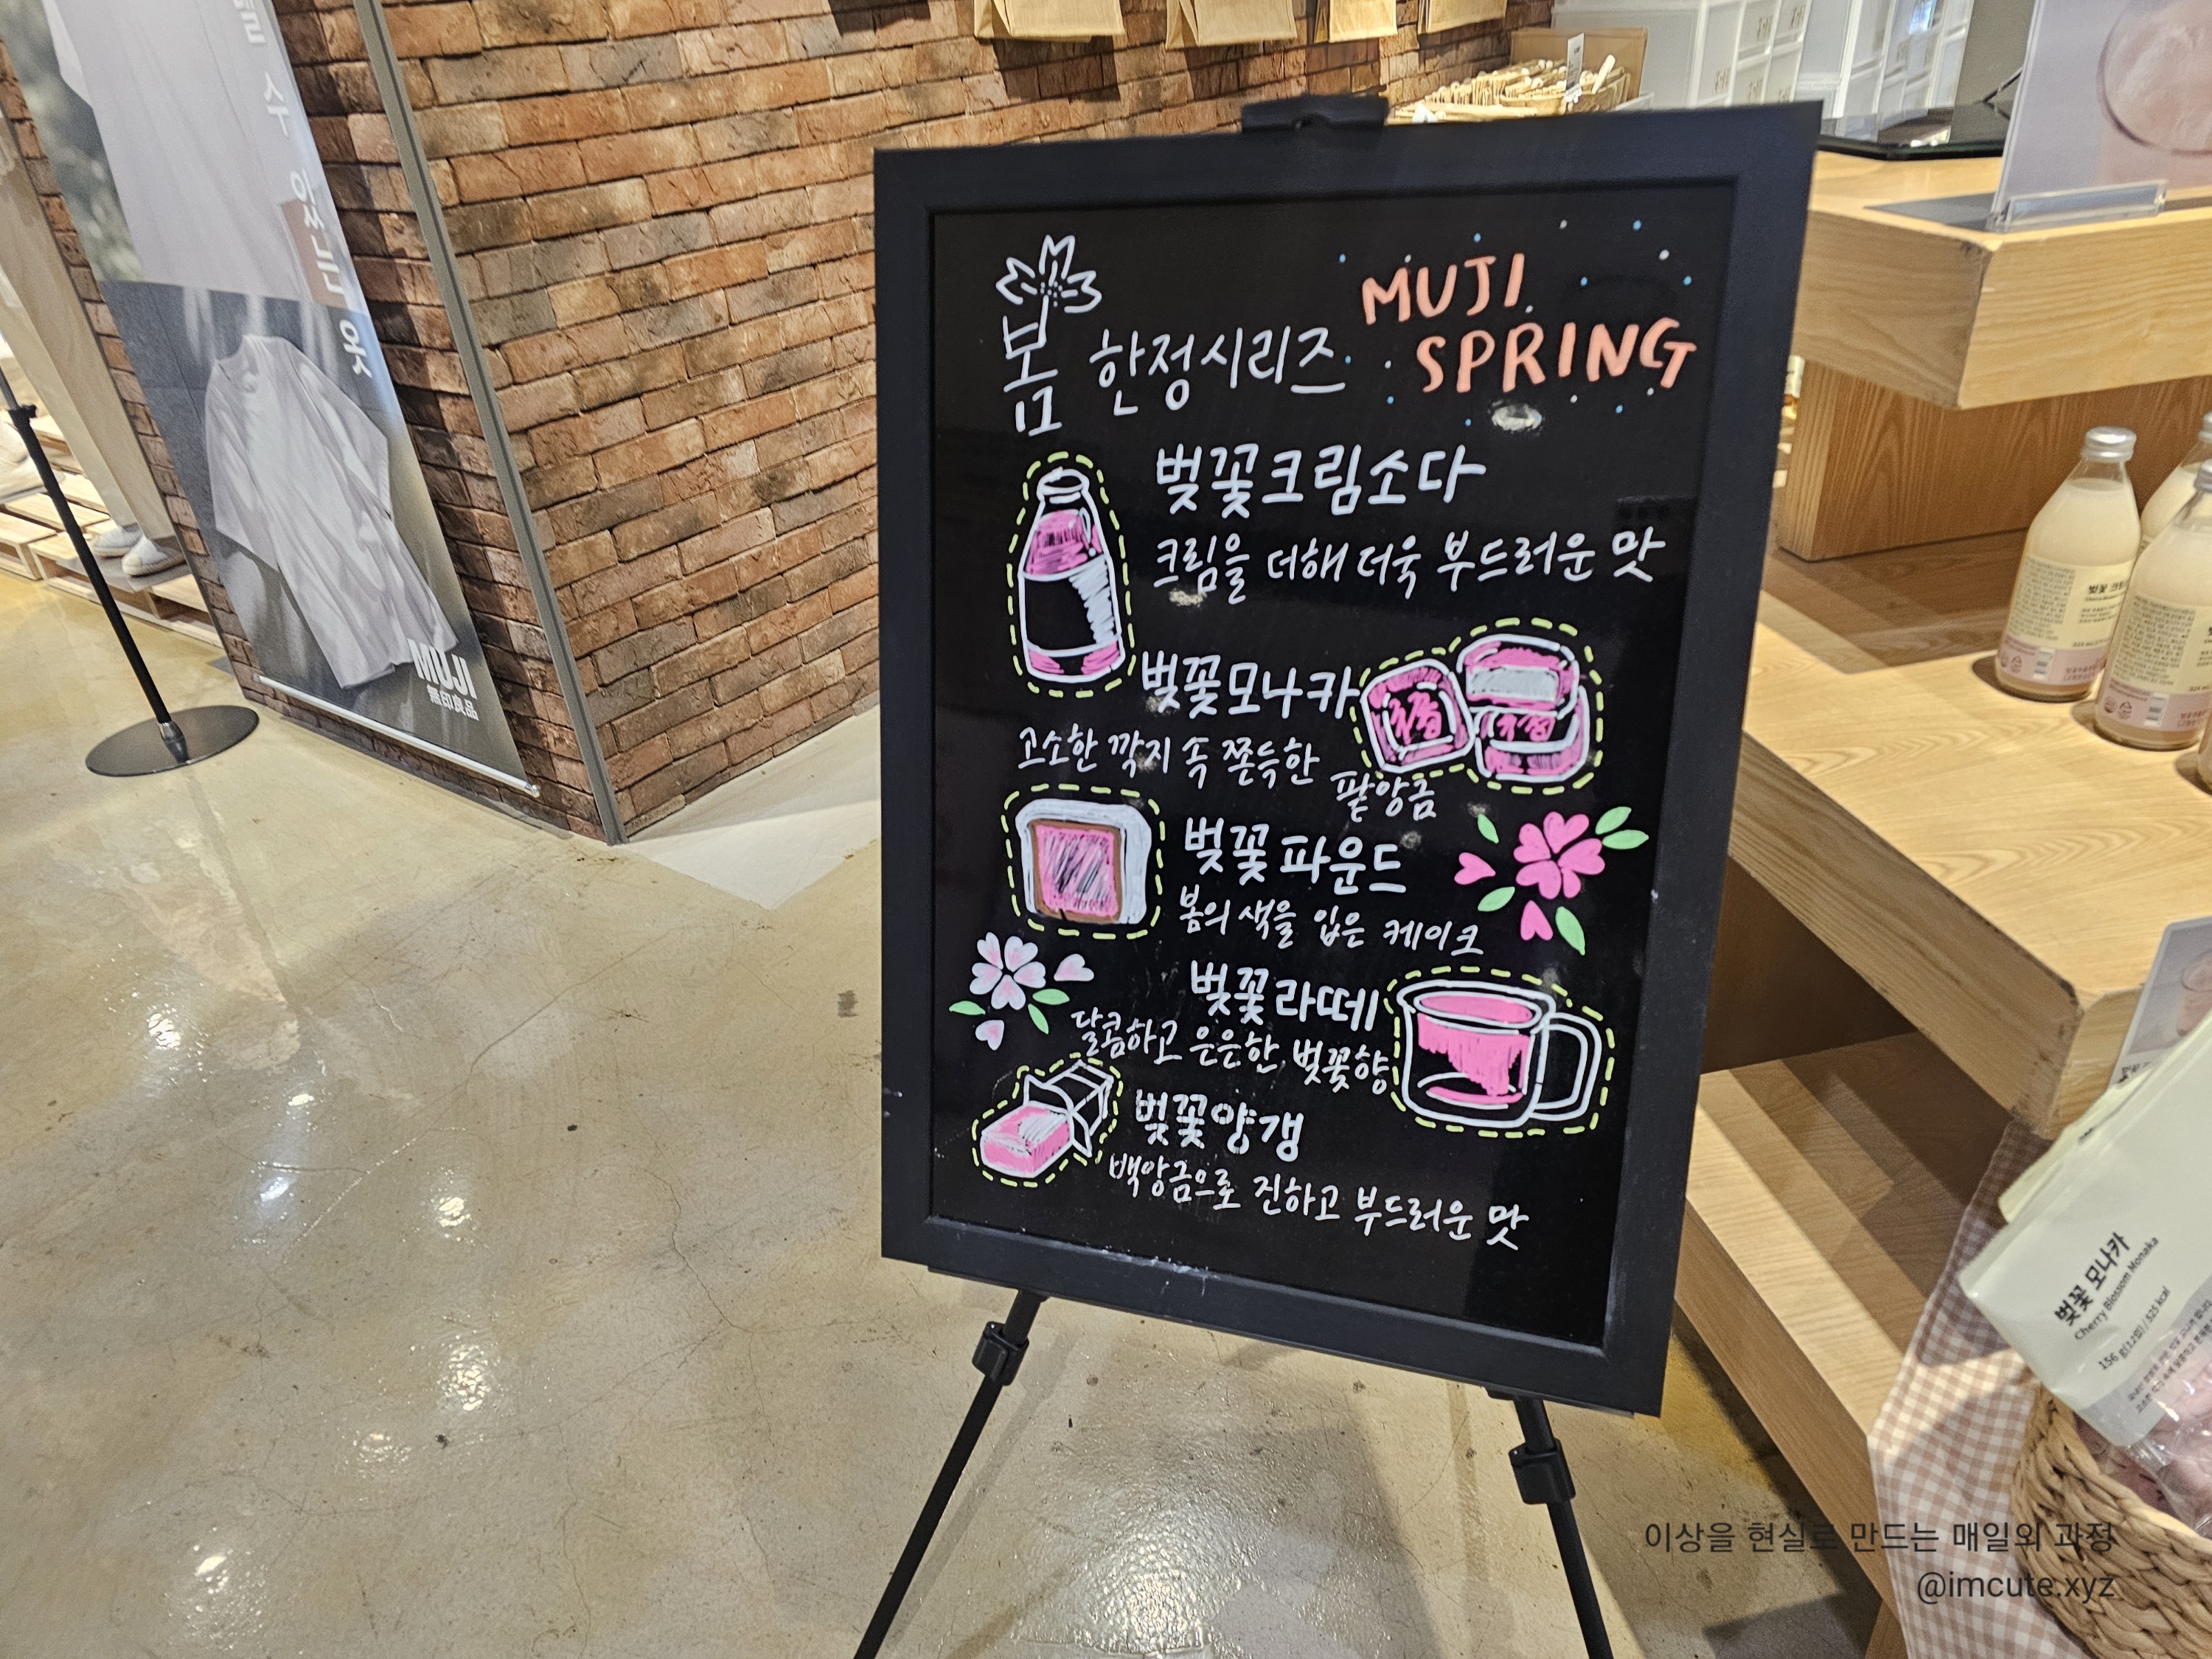 수 있는 옷
MUJI
無印良品
봄 한정시리즈
MUJI
SPRING
벚꽃크림소다
크림을 더해 더욱 부드러운 맛
벚꽃모나카
고소한 깍지 속 쫀득한
팥앙금
벚꽃파운드
봄의 색을 입은 케이크
벚꽃라떼
달콤하고 은은한 벚꽃향
벚꽃양갱
백앙금으로 진하고 부드러운 맛
벚꽃 모나카
Cherry Blossom Monaka
156 g(12입) / 525 kcal
이상을 현실로 만드는 매일의 과정
@imcute.xyz